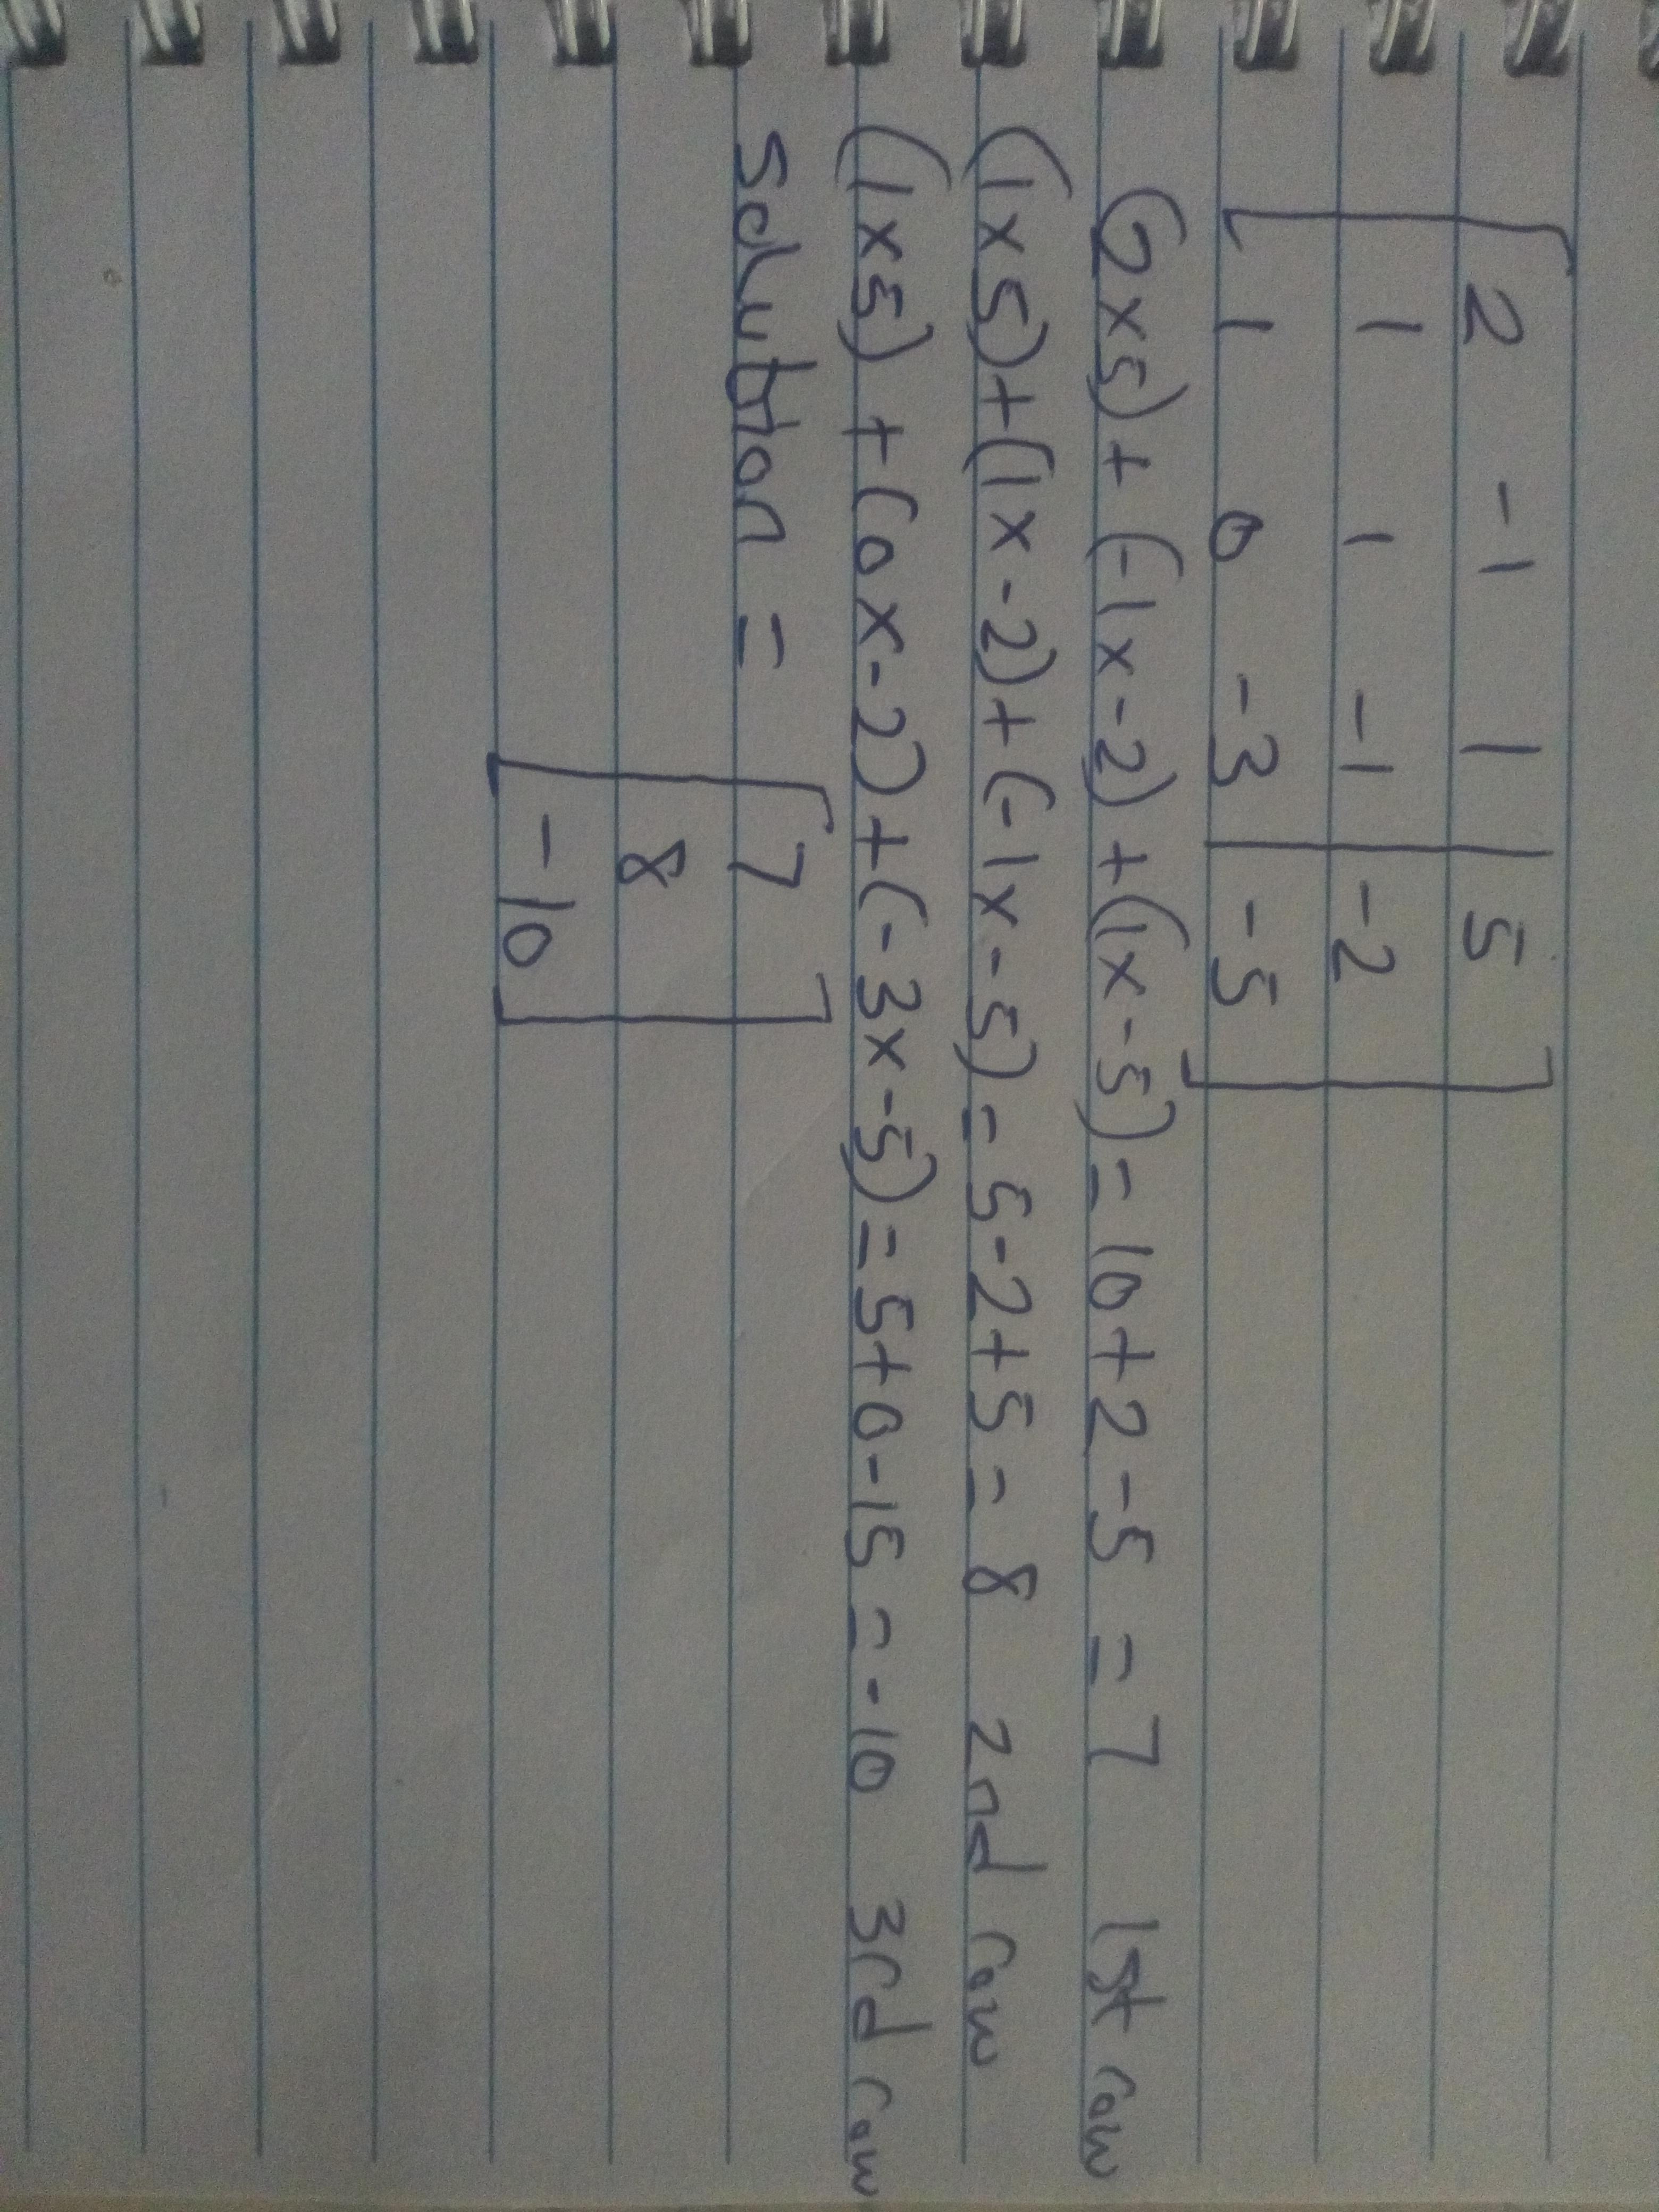 2 -1 1 | 5
1 1 -1 | -2
1 0 -3 | -5
(2x5)+(-1x-2)+(1x-5)=10+2-5=7 1st row
(1x5)+(1x-2)+(-1x-5)=5-2+5=8 2nd row
(1x5)+(0x-2)+(-3x-5)=5+0-15=-10 3rd row
Solution = 7
8
-10